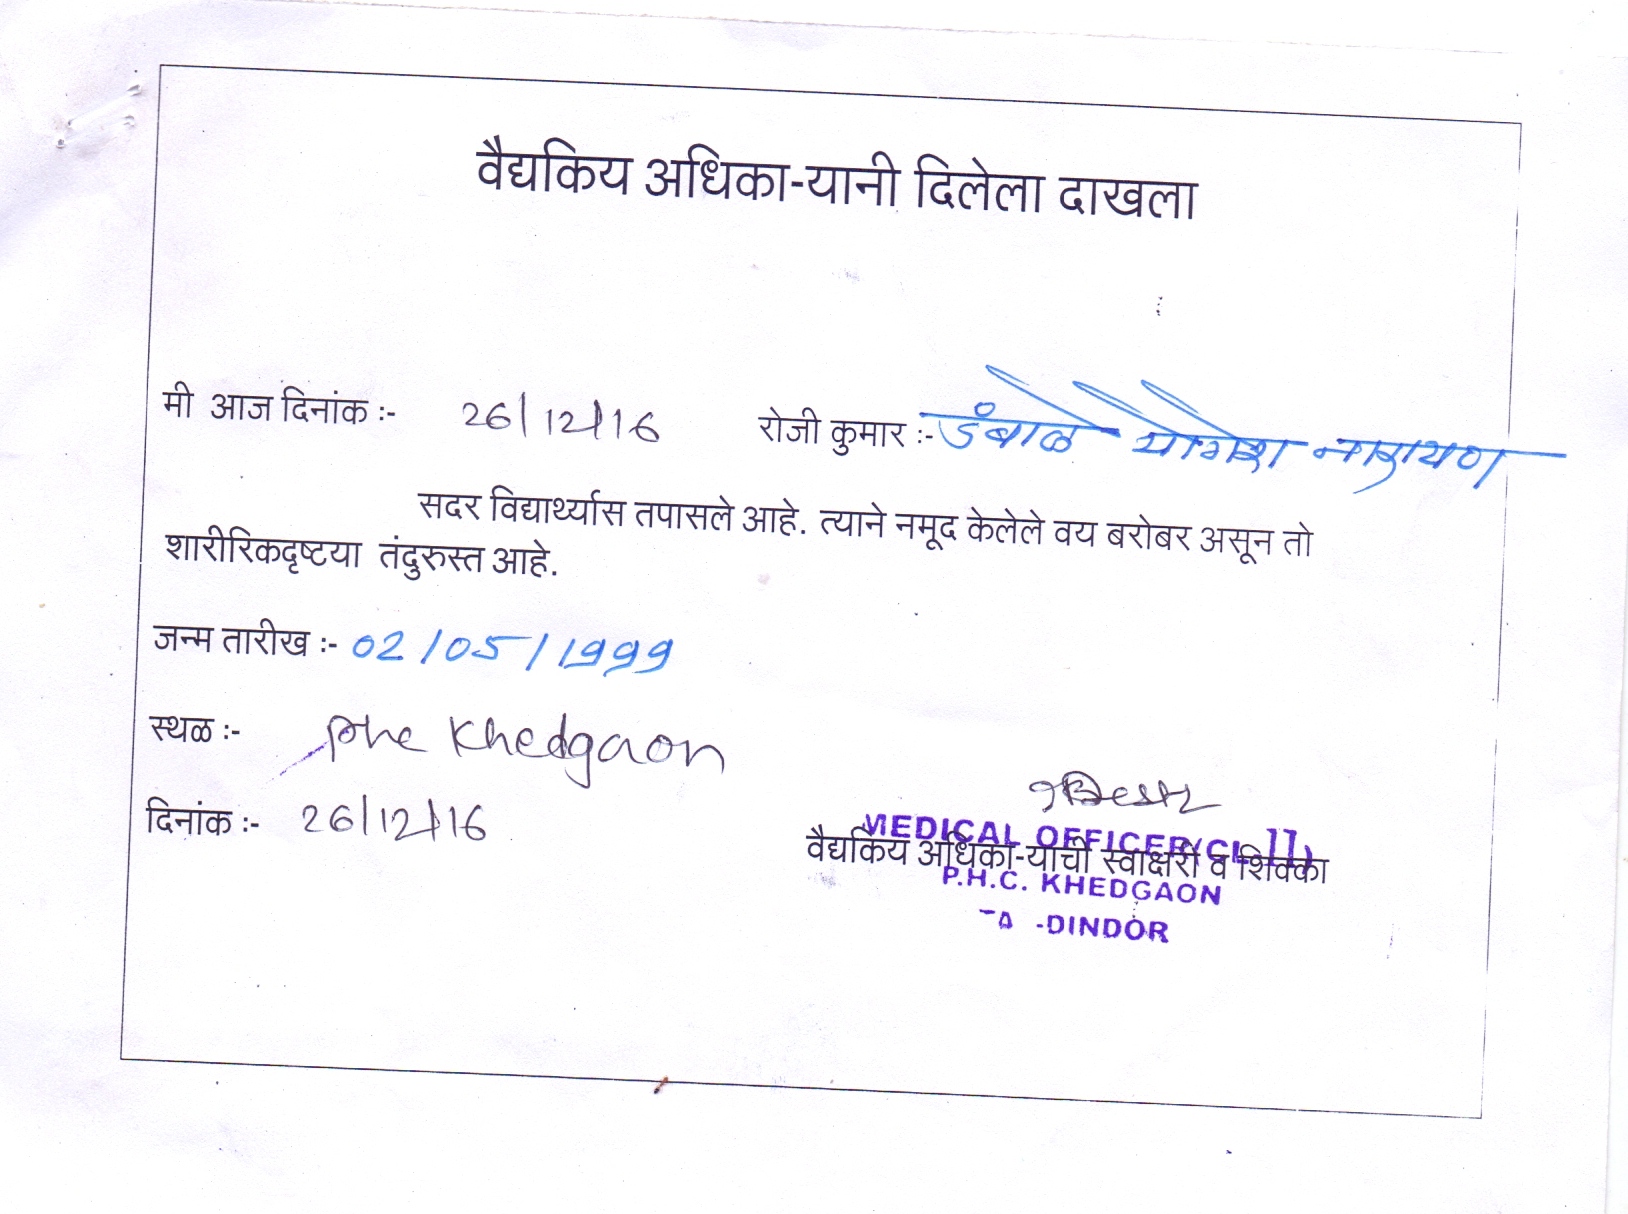 वैद्यकिय अधिका-यानी दिलेला दाखला
मी आज दिनांक :- 26/12/16 रोजी कुमार :- डंबाळे योगेश नारायण
सदर विद्यार्थ्यास तपासले आहे. त्याने नमूद केलेले वय बरोबर असून तो
शारीरिकदृष्टया तंदुरुस्त आहे.
जन्म तारीख :- 02/05/1999
स्थळ :- Phc Khedgaon
दिनांक :- 26/12/16
MEDICAL OFFICER
वैद्यकिय अधिका-याची स्वाक्षरी व शिक्का
P.H.C. KHEDGAON
-DINDOR